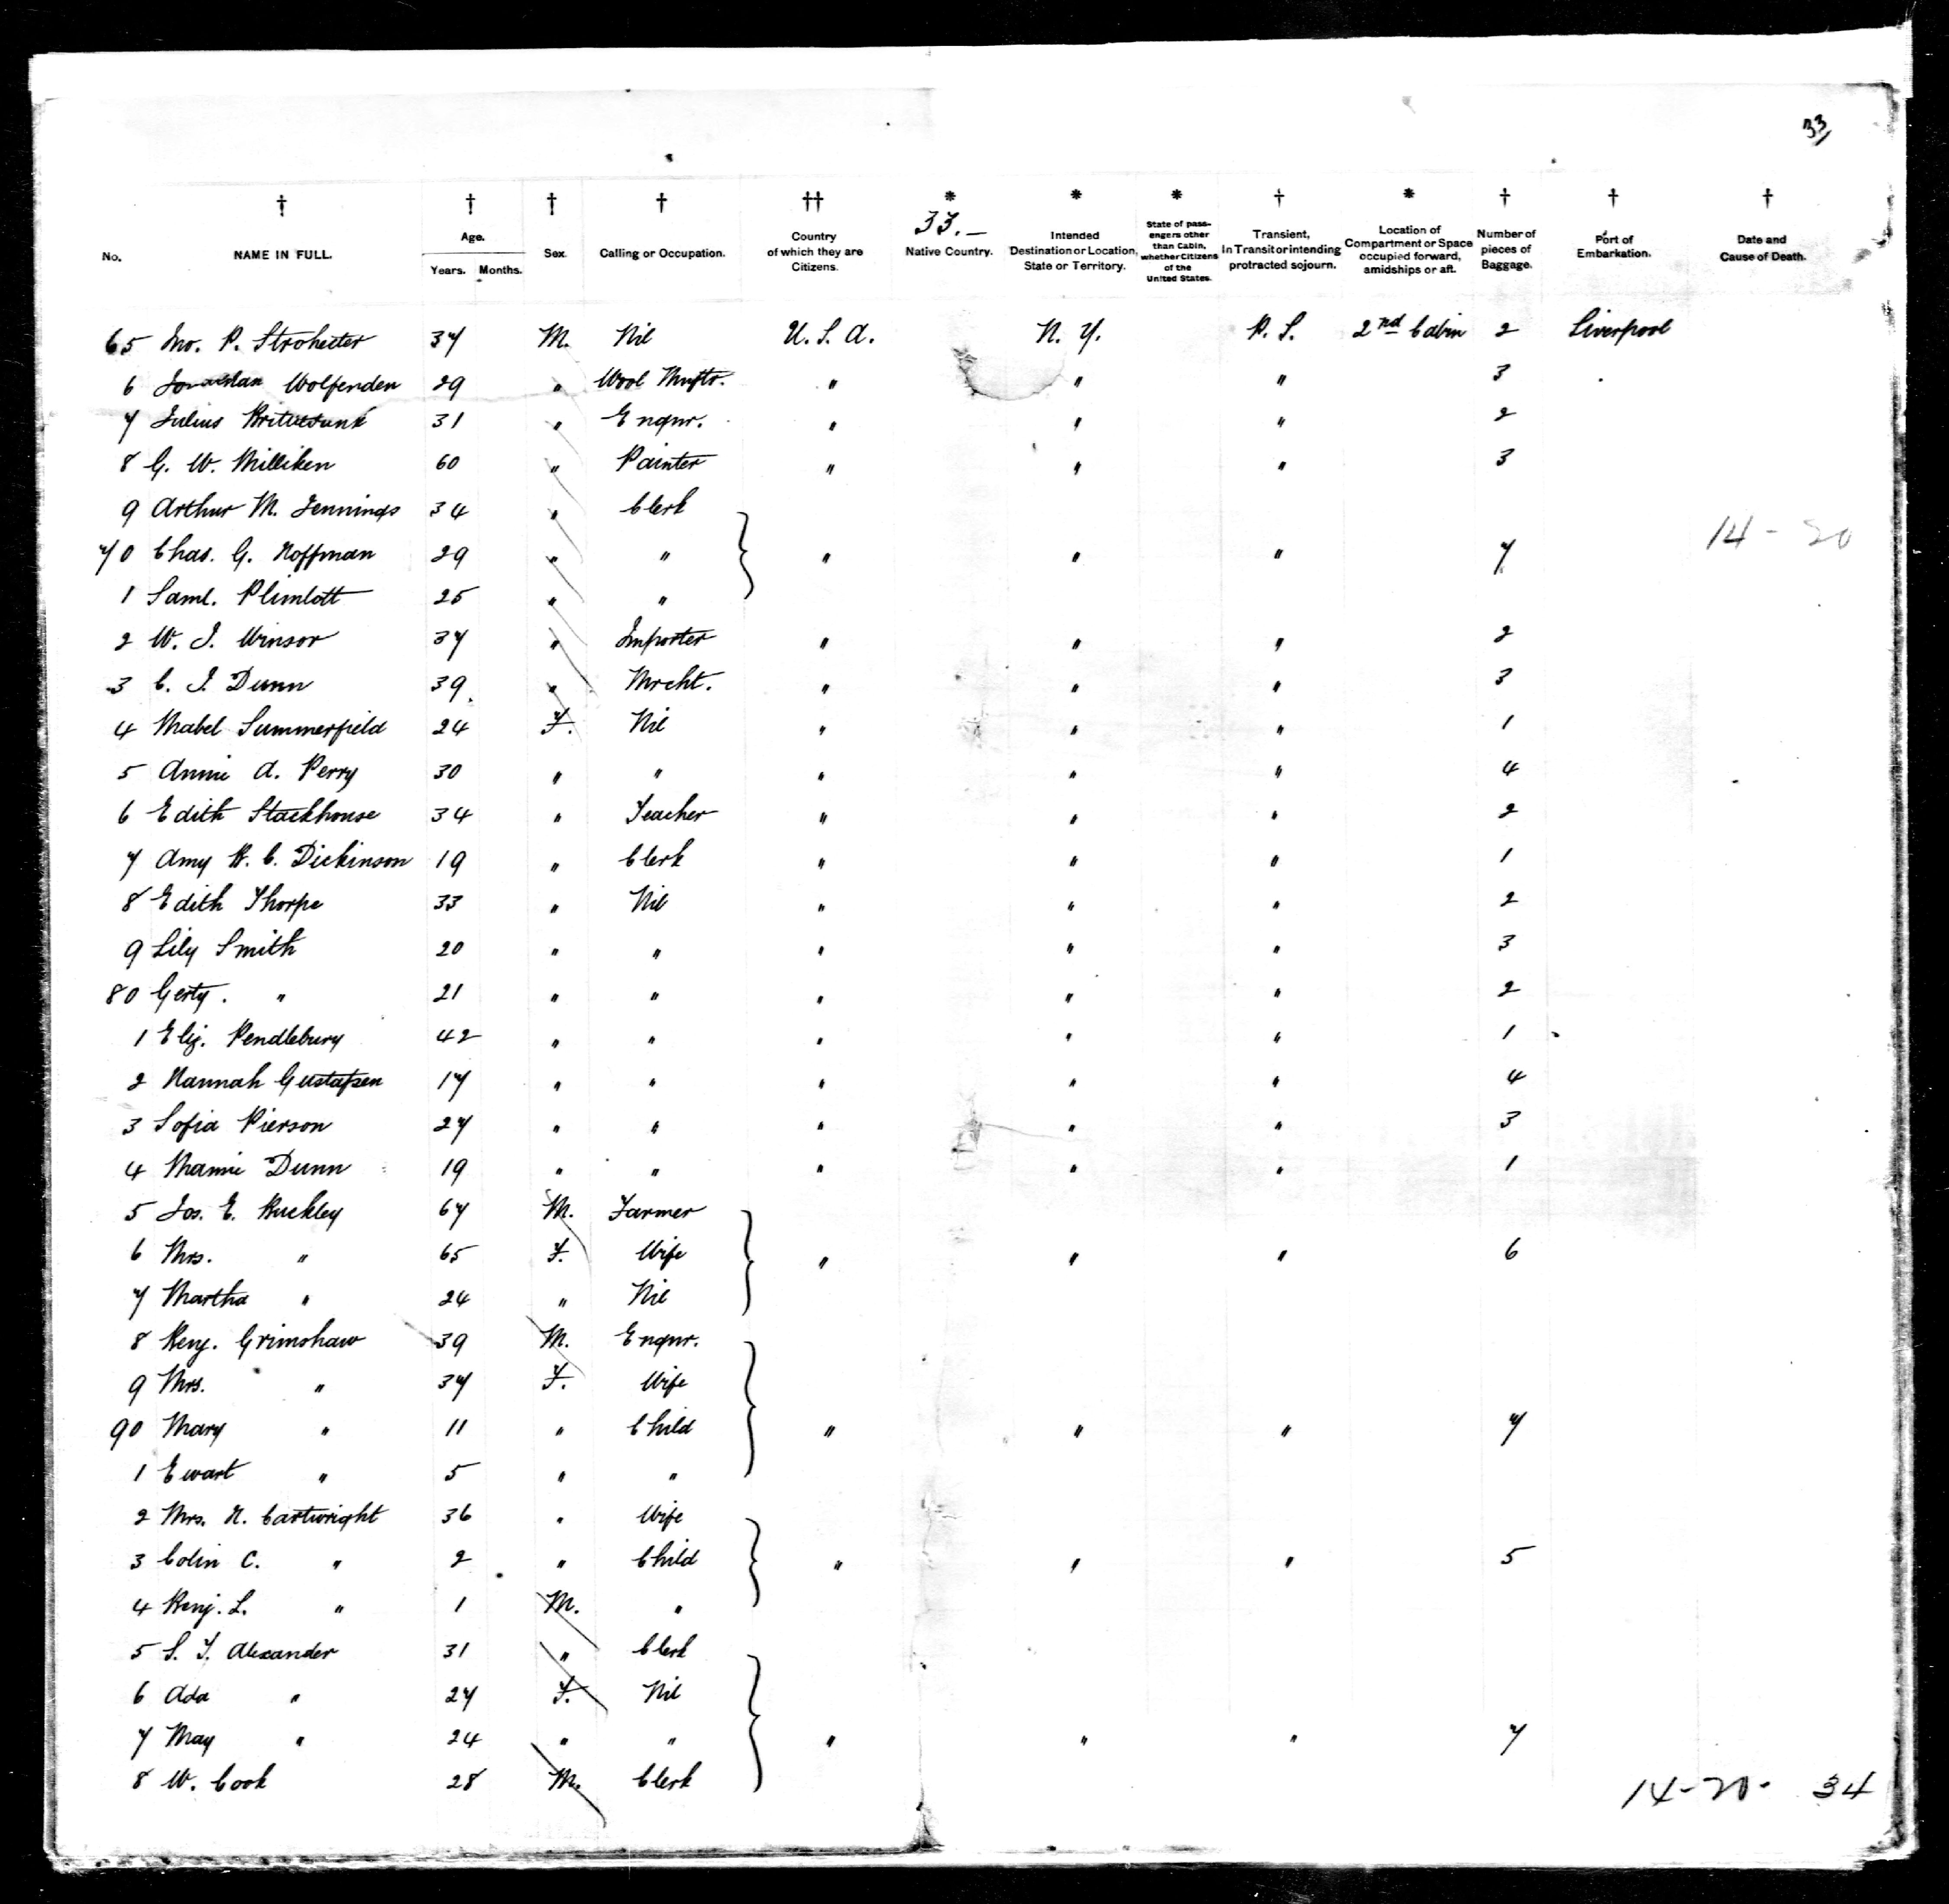 33
† † † † †† * * * † * † † †
33.—
No. NAME IN FULL. Age. Years. Months. Sex. Calling or Occupation. Country of which they are Citizens. Native Country. Intended Destination or Location, State or Territory. State of passengers other than Cabin, whether Citizens of the United States. Transient, In Transit or intending protracted sojourn. Location of Compartment or Space occupied forward, amidships or aft. Number of pieces of Baggage. Port of Embarkation. Date and Cause of Death.
65 Jno. P. Strohecter 37 M. Nil U. S. A. N. Y. P. S. 2nd Cabin 2 Liverpool
6 Jonathan Wolfenden 29 " Wool Mnftr. " " " 3
7 Julius 31 " Engnr. " " " 2
8 G. W. Milliken 60 " Painter " " " 3
9 Arthur M. Jennings 34 " Clerk
70 Chas. G. Hoffman 29 " " " " " 7 14 - 20
1 Saml. Plimlott 25 " "
2 W. J. Winsor 37 " Importer " " " 2
3 C. J. Dunn 39 " Mrcht. " " " 3
4 Mabel Summerfield 24 F. Nil " " " 1
5 Annie A. Perry 30 " " " " " 4
6 Edith Stackhouse 34 " Teacher " " " 2
7 Amy H. C. Dickinson 19 " Clerk " " " 1
8 Edith Thorpe 33 " Nil " " " 2
9 Lily Smith 20 " " " " " 3
80 Gerty. " 21 " " " " " 2
1 Eliz. Pendlebury 42 " " " " " 1
2 Hannah Gustafsen 17 " " " " " 4
3 Sofia Pierson 27 " " " " " 3
4 Mamie Dunn 19 " " " " " 1
5 Jos. E. Buckley 67 M. Farmer
6 Mrs. " 65 F. Wife " " " 6
7 Martha " 24 " Nil
8 Benj. Grimshaw 39 M. Engnr.
9 Mrs. " 37 F. Wife
90 Mary " 11 " Child " " " 7
1 Ewart " 5 " "
2 Mrs. H. Cartwright 36 " Wife
3 Colin C. " 2 " Child " " " 5
4 Benj. L. " 1 M. "
5 S. T. Alexander 31 " Clerk
6 Ada " 27 F. Nil
7 May " 24 " " " " " 7
8 W. Cook 28 M. Clerk
14-20- 34